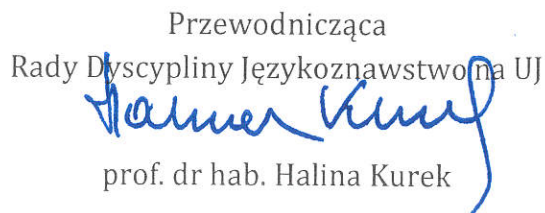 Przewodnicząca
Rady Dyscypliny Językoznawstwo na UJ
Halina Kurek
prof. dr hab. Halina Kurek